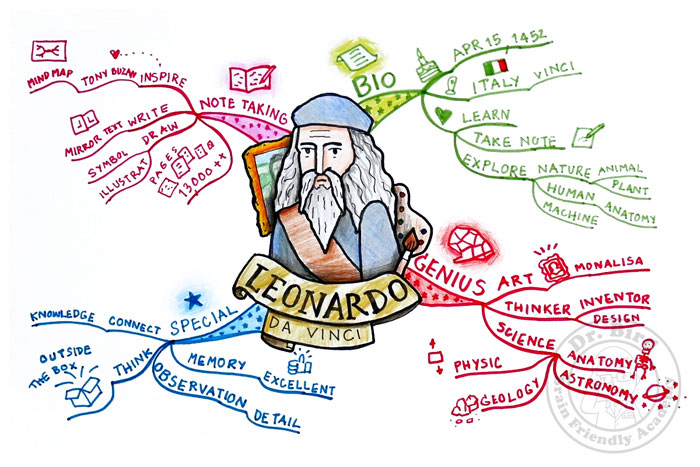 LEONARDO
DA VINCI
BIO
APRIL 15 1452
ITALY VINCI
LEARN
TAKE NOTE
EXPLORE NATURE ANIMAL
PLANT
HUMAN ANATOMY
MACHINE
GENIUS ART MONALISA
THINKER INVENTOR
DESIGN
SCIENCE ANATOMY
ASTRONOMY
PHYSIC
GEOLOGY
SPECIAL
CONNECT KNOWLEDGE
THINK
OUTSIDE
THE BOX
MEMORY EXCELLENT
OBSERVATION DETAIL
NOTE TAKING
INSPIRE TONY BUZAN MIND MAP
WRITE MIRROR TEXT
DRAW SYMBOL
ILLUSTRAT
PAGES
13,000 ++
Dr.
Brain Friendly Acade